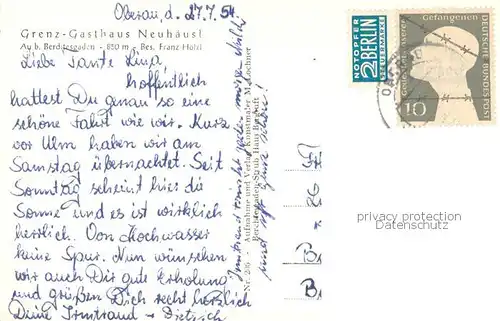 Oberau, d. 27.7.54
Grenz-Gasthaus Neuhäusl
Au b. Berchtesgaden - 850 m - Bes. Franz Hölzl
Liebe Tante Lina,
hoffentlich
hattest Du genau so eine
schöne Fahrt wie wir. Kurz
vor Ulm haben wir am
Samstag übernachtet. Seit
Sonntag scheint hier die
Sonne und es ist wirklich
herrlich. Von Hochwasser
keine Spur. Nun wünschen
wir auch Dir gute Erholung
und grüßen Dich recht herzlich
Deine Irmtraud - Dietrich
Nr. 206 - Aufnahme und Verlag Kunstmaler M. Lochner
Berchtesgaden-Strub Haus Bergluft
NOTOPFER
2 BERLIN
STEUERMARKE
Gedenket unserer Gefangenen
10
DEUTSCHE BUNDESPOST
privacy protection
Datenschutz